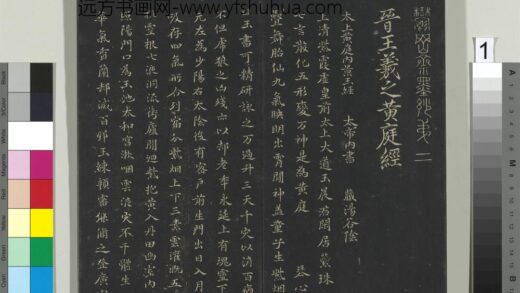 远方书画网-www.yfshuhua.com
1
鬱岡齋墨妙弟二
晉王羲之黃庭經
太上黃庭內景玉經 太帝內書 藏湯谷陰
上清紫霞虛皇前太上大道玉晨君閑居蘂珠
七言散化五形變万神是為黃庭 琴心
疊舞胎仙九氣映明出霄間神蓋童子生紫烟
玉書可精研詠之万過升三天千灾以消百病
不但虎狼之凶殘亦以却老年永延上有魂靈下
元左為少陽右太陰後有密戶前生門出日入月
吸存四氣所合列宿分紫烟上下三素雲灌溉五
靈根七液洞流衝廬間迴紫抱黃入丹田幽室內
照陽門口為玉池太和官漱咽靈液灾不干體生
華氣香蘭却滅百邪玉練顏審能修之登廣
Black
3/Color
White
Magenta
Red
Yellow
Green
Cyan
A